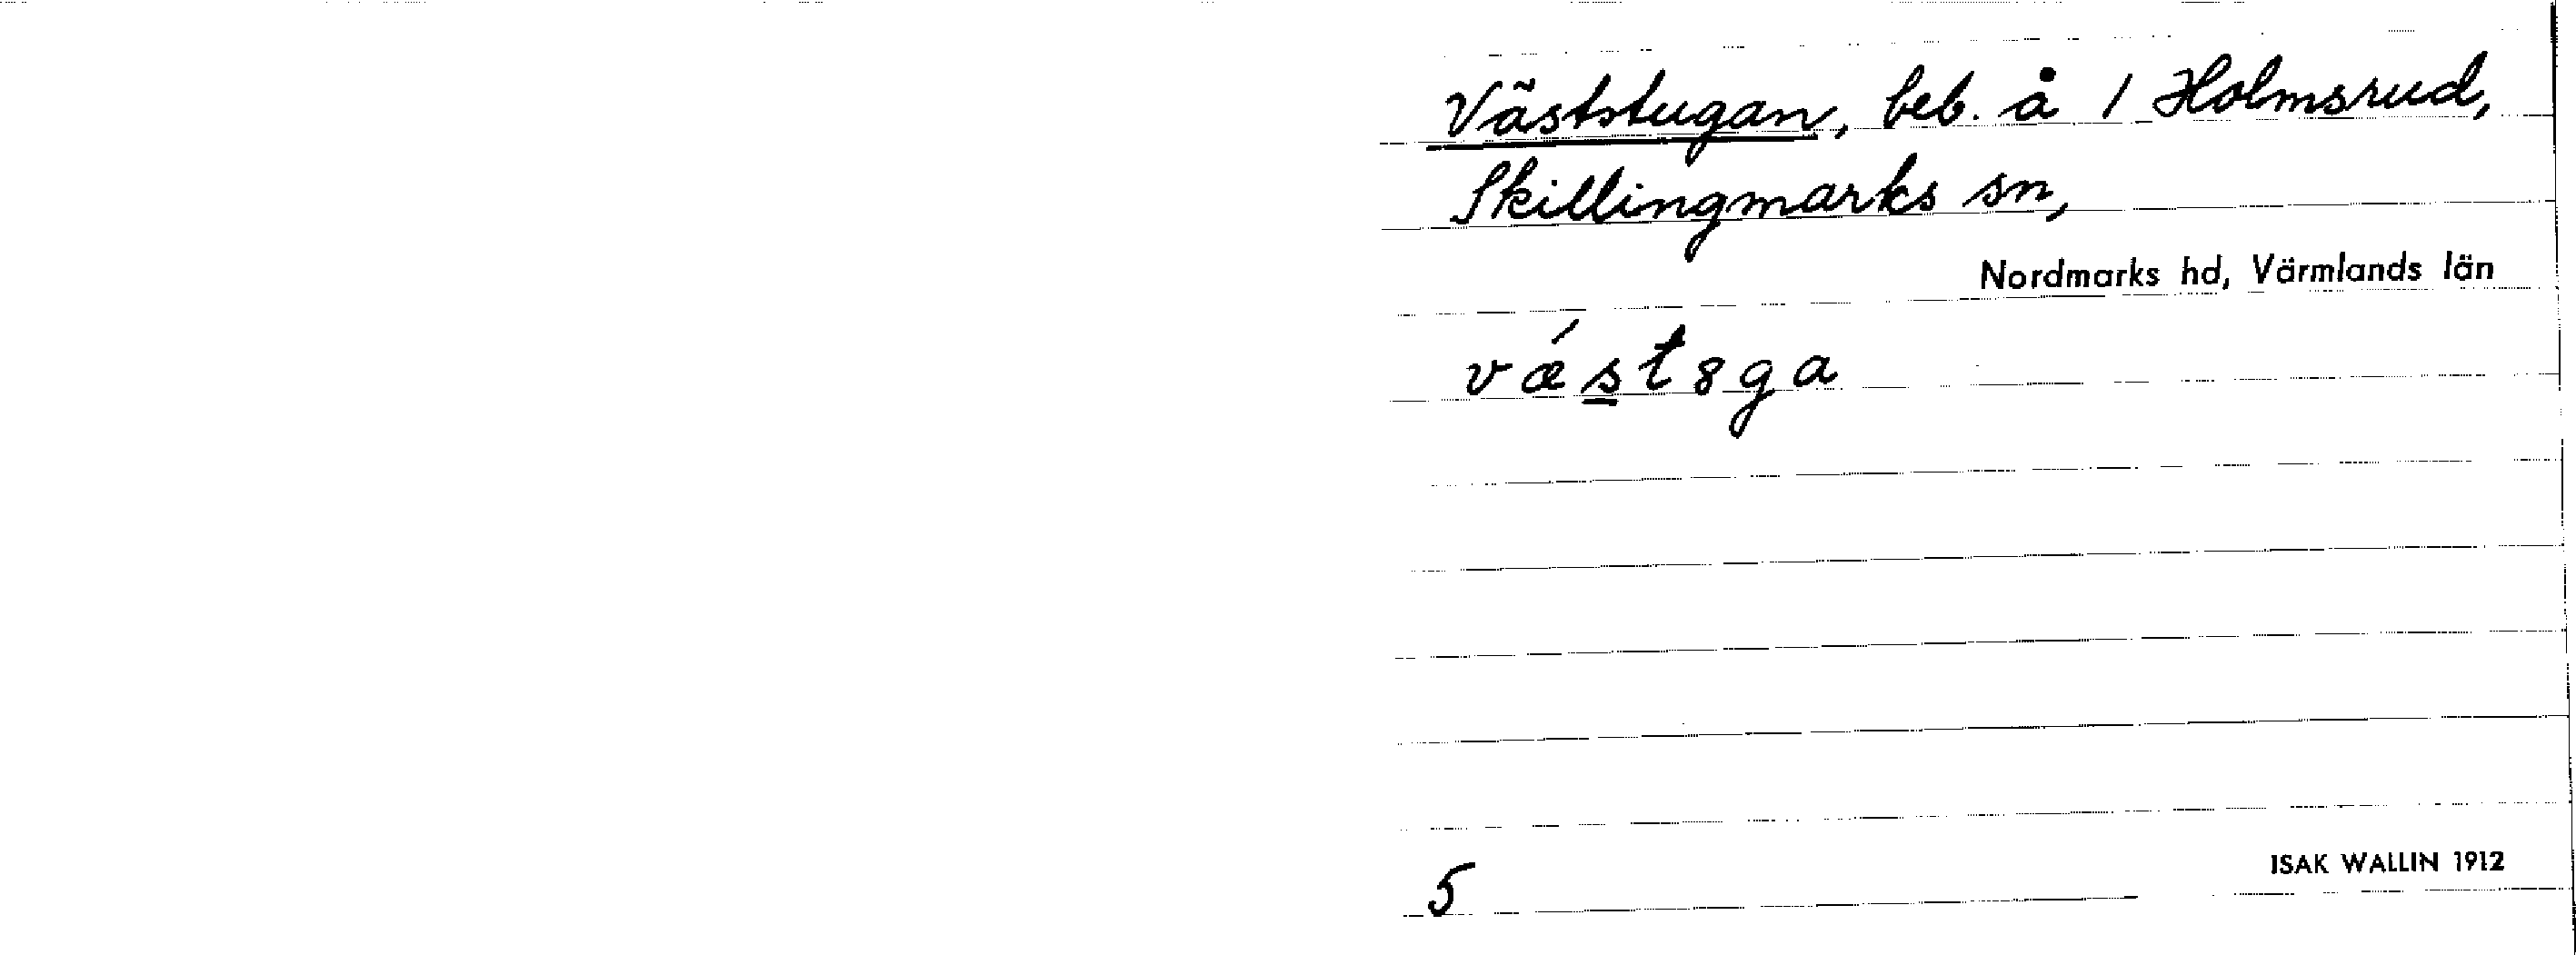 Väststugan, beb. å 1 Holmsrud,
Skillingmarks sn,
Nordmarks hd, Värmlands län
vǽst8ga
5
ISAK WALLIN 1912